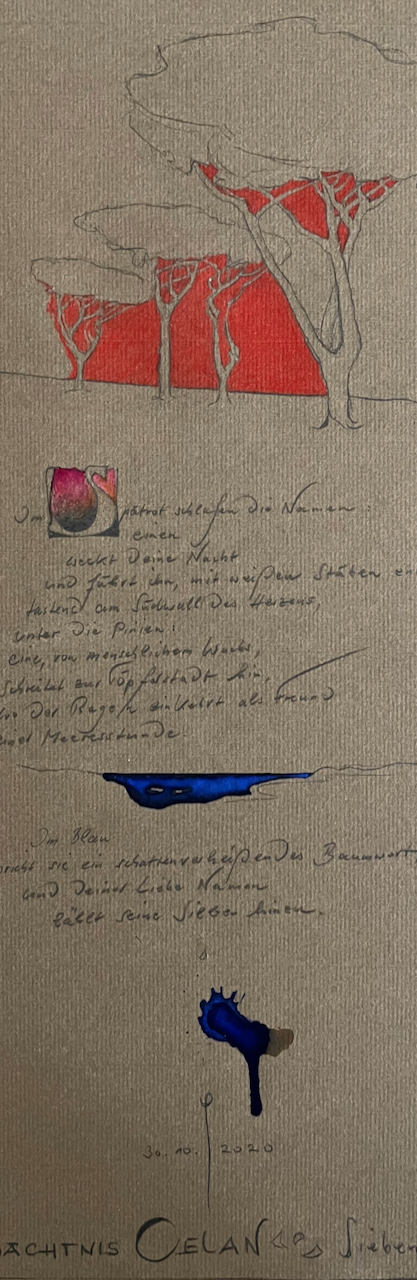 Im Spätrot schlafen die Namen:
einen
weckt Deine Nacht
und führt ihn, mit weißen Stäben en
tastend am Südwall des Herzens,
unter die Pinien:
eine, von menschlichem Wuchs,
schreitet zur Töpferstadt hin,
wo der Regen einkehrt als Freund
einer Meeresstunde.
Im Blau
spricht sie ein schattenverheißendes Baumwort,
und Deiner Liebe Namen
zählt seine Silben hinzu.
30. 10. 2020
ÄCHTNIS CELAN Sieben